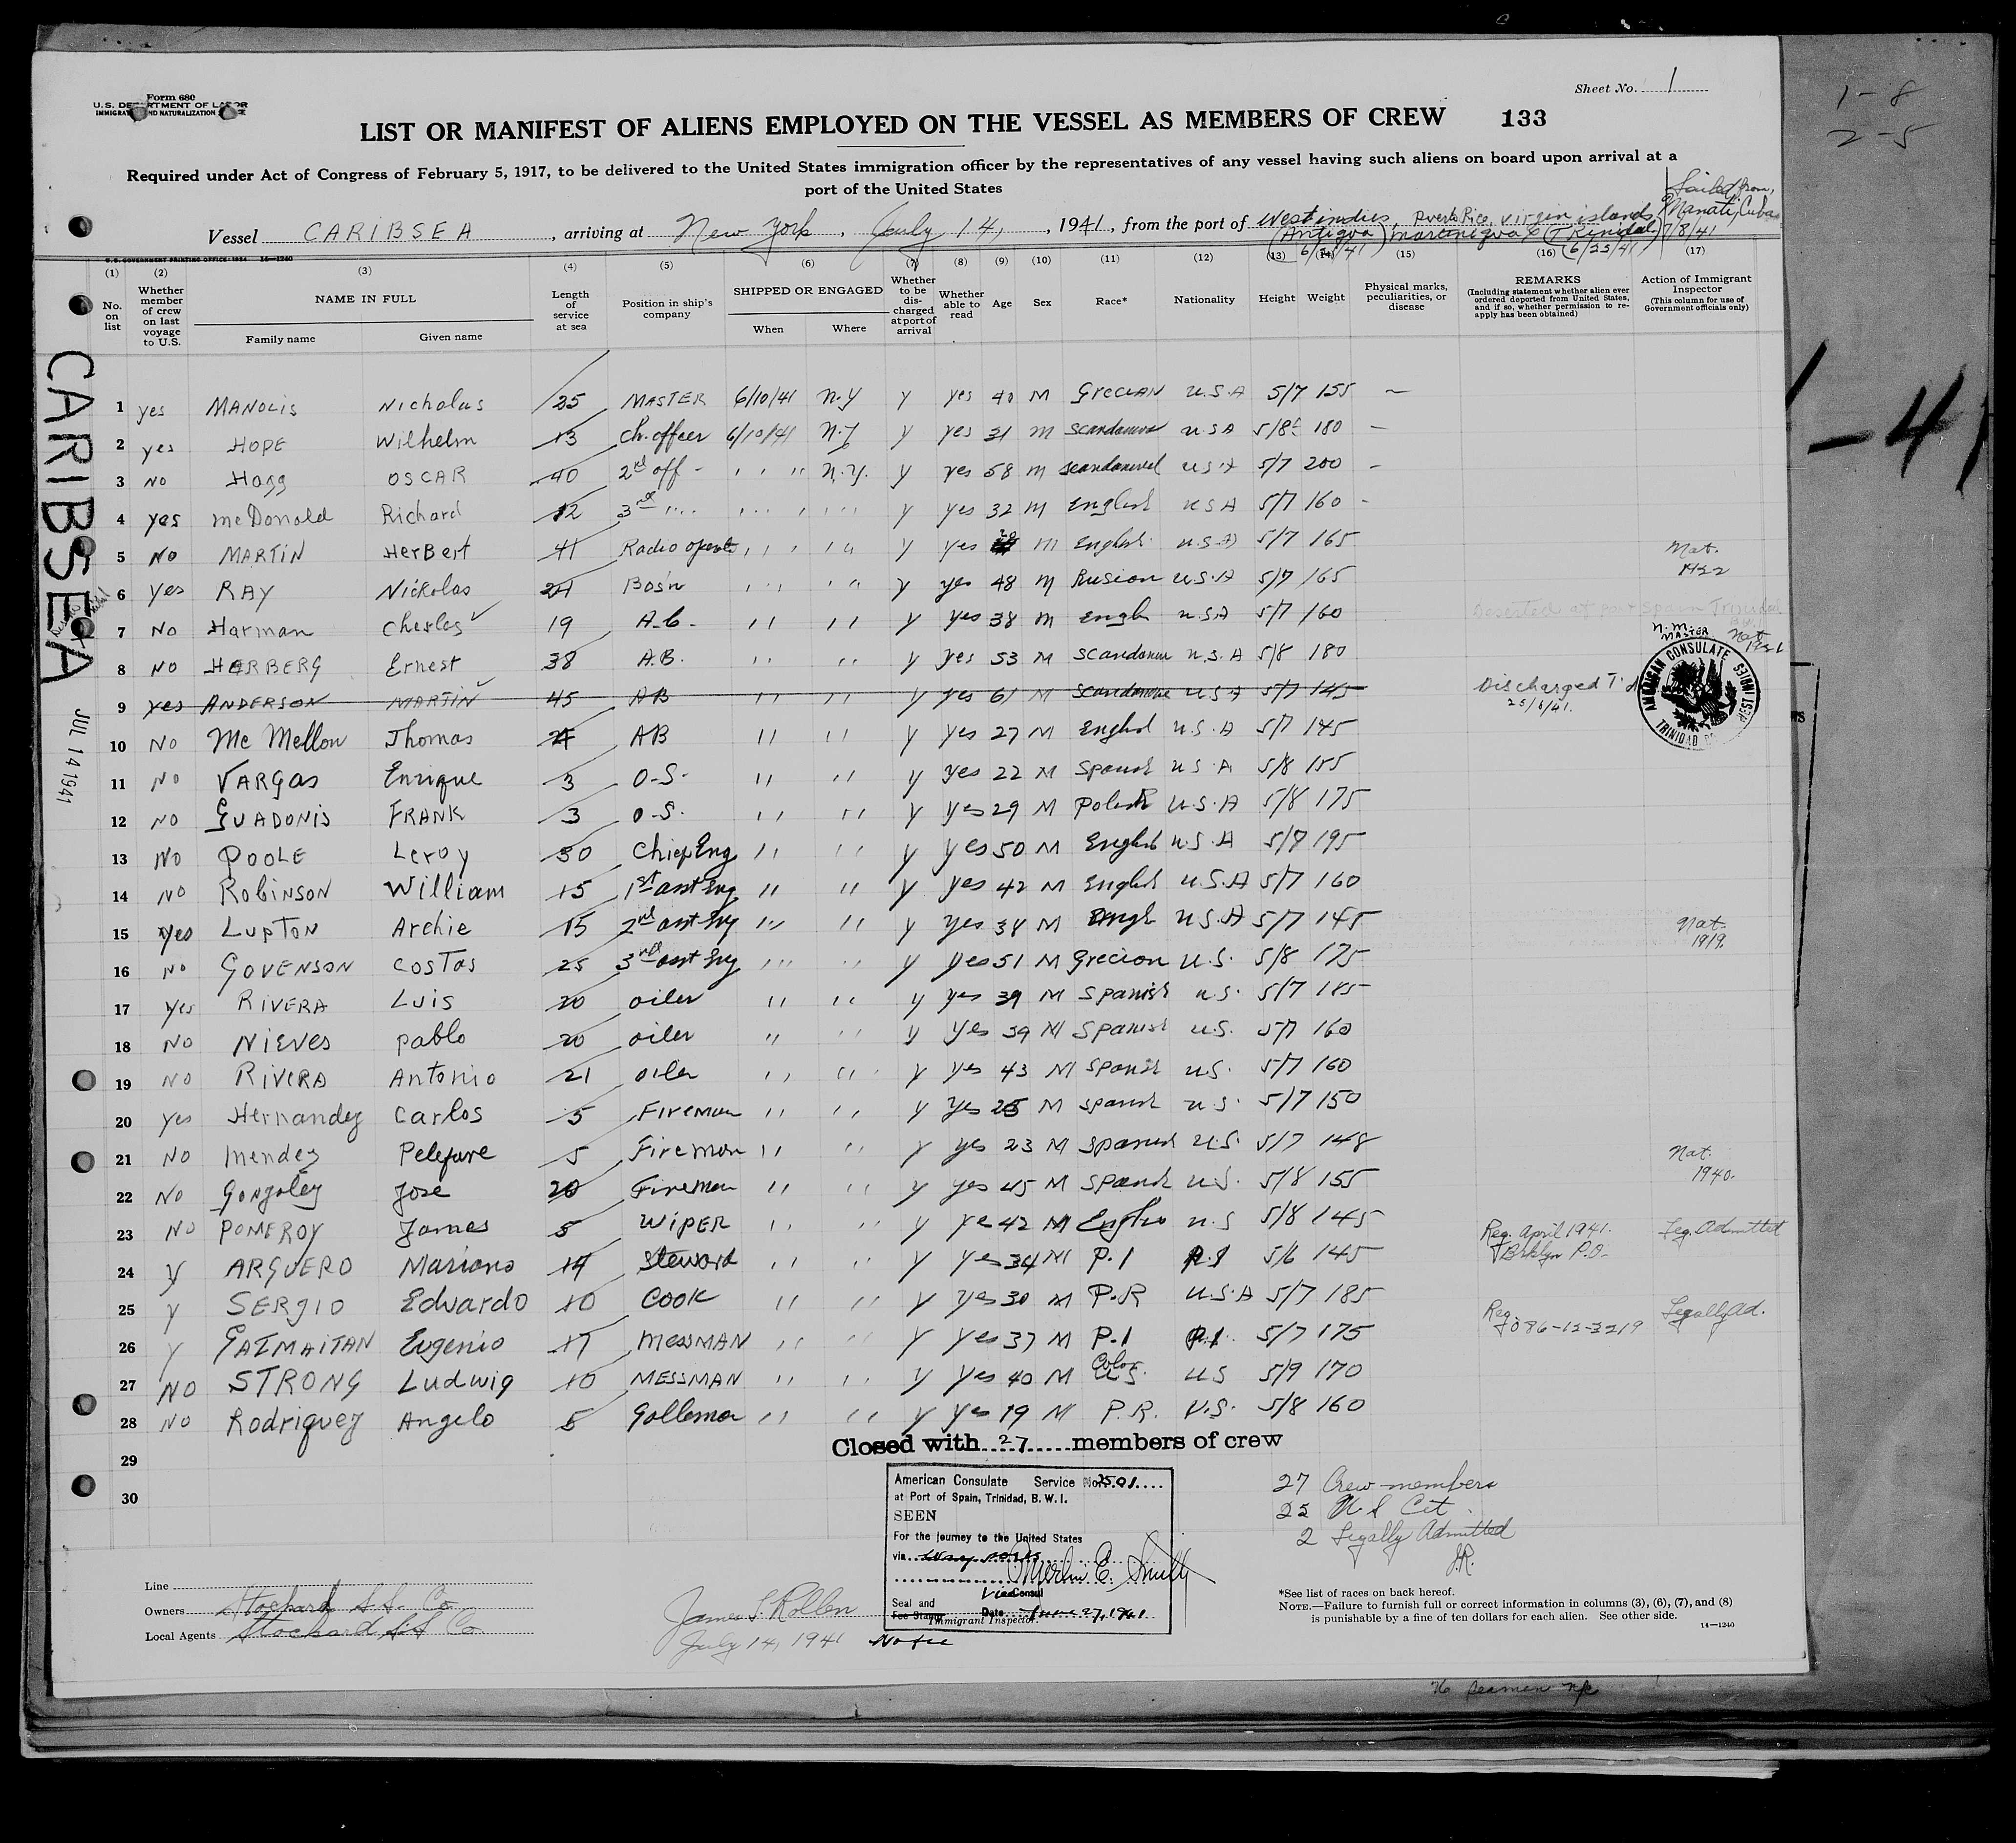 1-8
2-5
Form 680
U.S. DEPARTMENT OF LABOR
IMMIGRATION AND NATURALIZATION SERVICE
Sheet No. 1
LIST OR MANIFEST OF ALIENS EMPLOYED ON THE VESSEL AS MEMBERS OF CREW 133
Required under Act of Congress of February 5, 1917, to be delivered to the United States immigration officer by the representatives of any vessel having such aliens on board upon arrival at a
port of the United States
Sailed from
Manati, Cuba
7/8/41
Vessel CARIBSEA, arriving at New York, July 14, 1941, from the port of West indies, Puerto Rico, Virgin islands
(Antigva) Martinigva & (Trinidad)
6/25/41
U.S. GOVERNMENT PRINTING OFFICE: 1934 14-1240
(1) (2) (3) (4) (5) (6) (7) (8) (9) (10) (11) (12) (13) (14) (15) (16) (17)
No. on list
Whether member of crew on last voyage to U.S.
NAME IN FULL
Family name Given name
Length of service at sea
Position in ship's company
SHIPPED OR ENGAGED
When Where
Whether to be discharged at port of arrival
Whether able to read
Age Sex Race* Nationality Height Weight
Physical marks, peculiarities, or disease
REMARKS
(Including statement whether alien ever ordered deported from United States, and if so, whether permission to reapply has been obtained)
Action of Immigrant Inspector
(This column for use of Government officials only)
1 yes MANOLIS Nicholas 25 MASTER 6/10/41 N.Y y yes 40 M GRECIAN U.S.A 5/7 155 —
2 yes HOPE Wilhelm 13 Ch. offeer 6/10/41 N.Y y yes 31 M U S A 5/8 180 —
3 NO Hagg OSCAR 40 2nd off - " " N.Y. y yes 58 M U S A 5/7 200 -
4 yes McDonald Richard 12 3rd " " " y yes 32 M English U S A 5/7 160 -
5 NO MARTIN HerBert 41 Radio " " y yes M English U.S.A 5/7 165
6 yes RAY Nickolas 24 Bos'n " " y yes 48 M Rusion U.S.A 5/7 165
7 NO Harman Charles 19 A.B. " " y yes 38 M Engl U.S.A 5/7 160 Deserted at port Spain Trinidad
8 NO HERBERG Ernest 38 A.B. " " y yes 53 M U.S.A 5/8 180
9 yes ANDERSON MARTIN 45 AB " " y yes 61 M U S A 5/7 145 Discharged
10 NO Mc Mellon Thomas AB " " y yes 27 M U.S.A 5/7 145
11 NO VARGAS Enrique 3 O-S. " " y yes 22 M U S A 5/8 155
12 NO GUADONIS FRANK 3 O-S. " " y yes 29 M U.S.A 5/8 175
13 NO POOLE Leroy 30 Chief Eng " " y yes 50 M English U.S.A 5/8 195
14 NO Robinson William 15 1st asst Eng " " y yes 42 M English U.S.A 5/7 160
15 yes LUPTON Archie 15 2nd asst Eng " " y yes 38 M Engl U.S.A 5/7 145
16 NO GOVENSON COSTAS 25 3rd asst Eng " " y yes 51 M Grecion U.S. 5/8 175
17 yes RIVERA Luis 20 oiler " " y yes 39 M Spanish U.S. 5/7 185
18 NO NIEVES pablo 20 oiler " " y yes 39 M Spanish U.S. 5/7 160
19 NO RIVERA Antonio 21 oiler " " y yes 43 M U.S. 5/7 160
20 yes Hernandez Carlos 5 Fireman " " y yes 25 M U.S. 5/7 150
21 NO Mendez 5 Fireman " " y yes 23 M U.S. 5/7 148
22 NO Gonzalez Jose 20 Fireman " " y yes 45 M U.S. 5/8 155
23 NO POMEROY James 5 WIPER " " y ye 42 M U.S 5/8 145
24 y ARGUERO Mariano 14 Steward " " y yes 34 M P.I P.I 5/6 145
25 y SERGIO Edvardo 10 COOK " " y yes 30 M P.R U.S.A 5/7 185
26 y GATMAITAN Eugenio 17 MESSMAN " " y yes 37 M P.I P.I. 5/7 175
27 NO STRONG Ludwig 10 MESSMAN " " y yes 40 M U.S. US 5/9 170
28 NO Rodriguez Angelo 5 " " y yes 19 M P.R. U.S. 5/8 160
29
30
Nat. 1922
N.M.
MASTER
AMERICAN CONSULATE
TRINIDAD
Nat. 1919.
Nat. 1940.
Reg. April 1941. Brklyn P.O. Leg. Admitted
Reg. 086-12-3219 Legally ad.
CARIBSEA
JUL 14 1941
-41
Closed with 27 members of crew
American Consulate Service No. 2501
at Port of Spain, Trinidad, B. W. I.
SEEN
For the journey to the United States
via way ports
Merlin E. Smith
Vice Consul
Seal and
Fee Stamp Date June 27, 1941
Immigrant Inspector
27 Crew members
25 U S Cit
2 Legally Admitted
J.R.
Line
Owners Stockard S.S. Co
Local Agents Stockard S.S Co
James S. Rollen
July 14, 1941
No fee
*See list of races on back hereof.
NOTE.—Failure to furnish full or correct information in columns (3), (6), (7), and (8)
is punishable by a fine of ten dollars for each alien. See other side.
14—1240